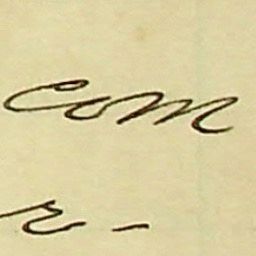 com
r -